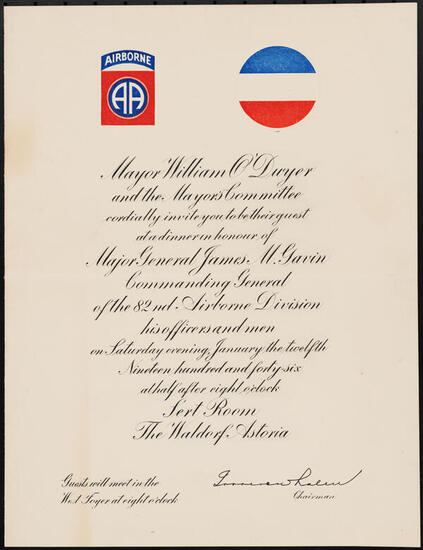 AIRBORNE
AA
Mayor William O'Dwyer
and the Mayor's Committee
cordially invite you to be their guest
at a dinner in honour of
Major General James M. Gavin
Commanding General
of the 82nd Airborne Division
his officers and men
on Saturday evening, January the twelfth
Nineteen hundred and forty-six
at half after eight o'clock
Sert Room
The Waldorf-Astoria
Guests will meet in the
West Foyer at eight o'clock
Chairman